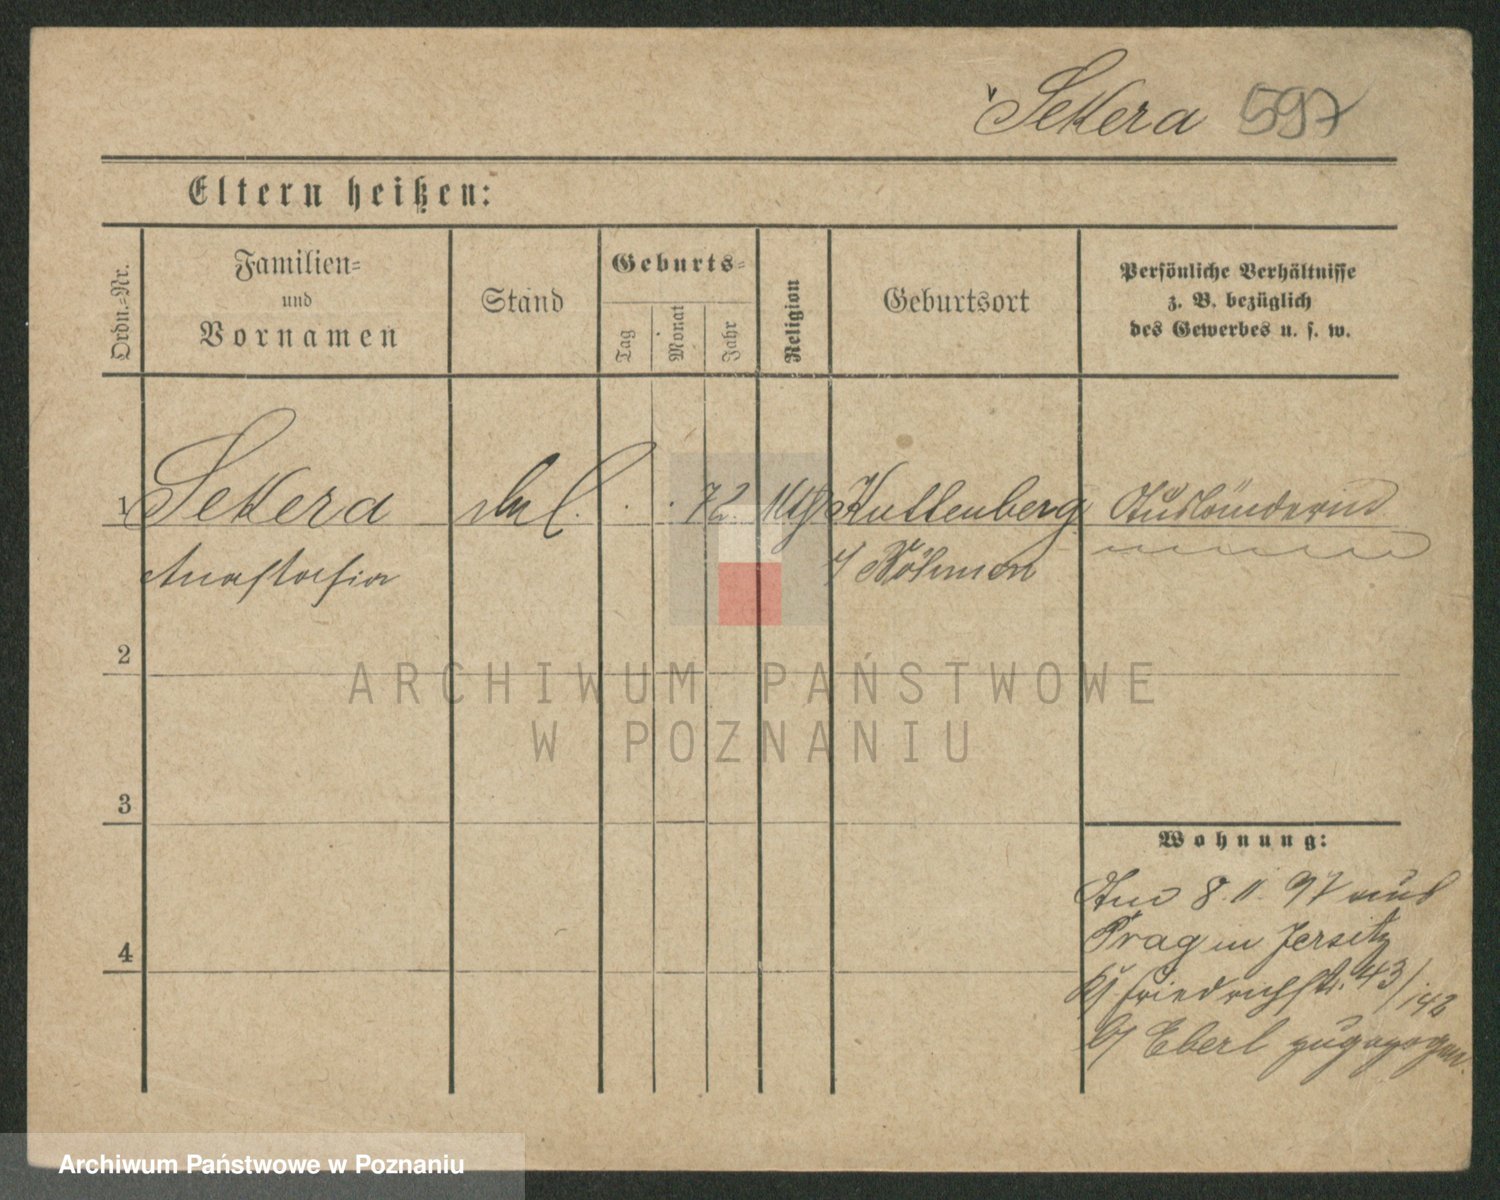 Sekera 597
Eltern heißen:
Ordn.-Nr.
Familien-
und
Vornamen
Stand
Geburts-
Tag
Monat
Jahr
Religion
Geburtsort
Persönliche Verhältnisse
z. B. bezüglich
des Gewerbes u. s. w.
1 Sekera . . 72 Kuttenberg Ausländerin
Anastasia i/ Böhmen
2
ARCHIWUM PAŃSTWOWE
W POZNANIU
3
Wohnung:
Am 8.11.97 aus
Prag in Jersitz
Friedrichstr. 43/142
b/ Eberl zugezogen.
4
Archiwum Państwowe w Poznaniu